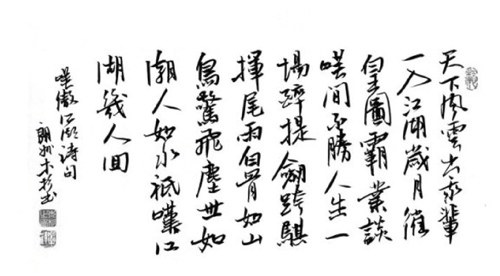 天下風雲出我輩
一入江湖歲月催
皇圖霸業談
咲間不勝人生一
場醉提劍跨騎
揮尾雨白骨如山
鳥驚飛塵世如
潮人如水祇嘆江
湖幾人回
咲傲江湖詩句
木杉書